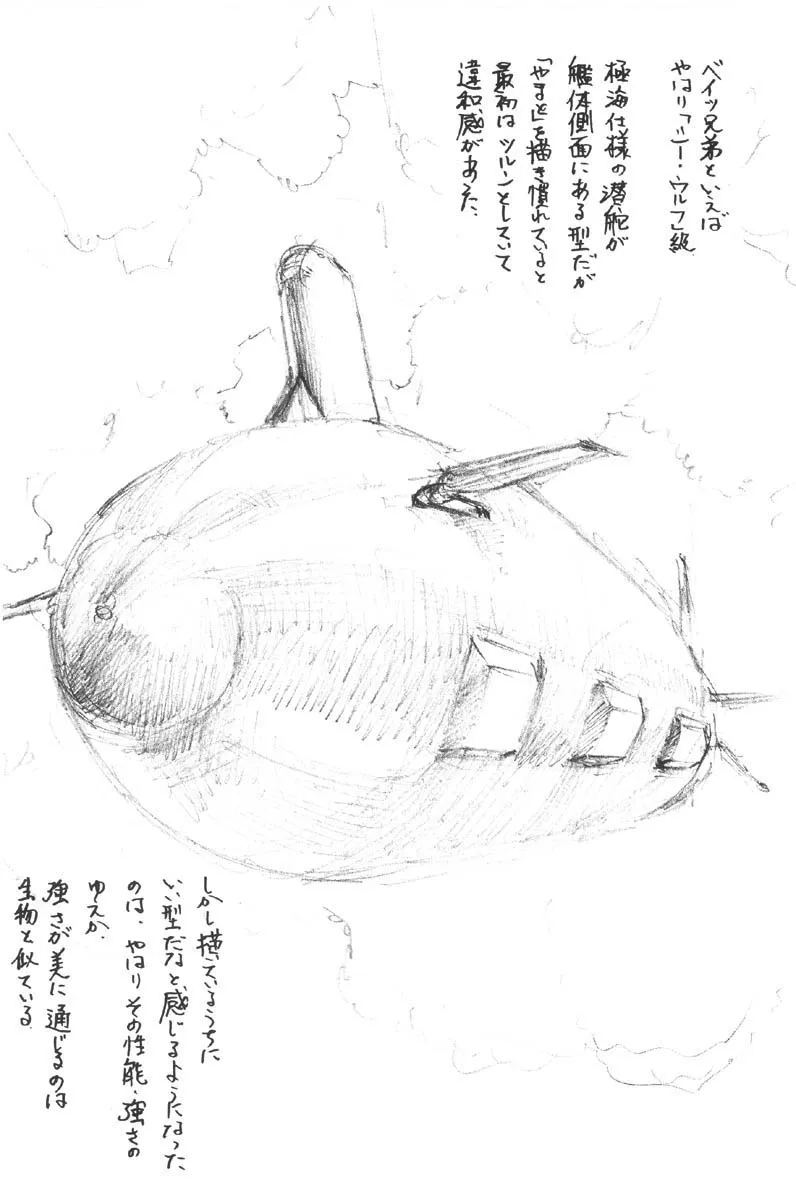 ベイツ兄弟といえば
やはり「シー・ウルフ」級
極海仕様の潜舵が
艦体側面にある型だが
「やまと」を描き慣れていると
最初はツルンとしていて
違和感があった.
しかし描いているうちに
いい型だなと感じるようになった
のは、やはりその性能・強さの
ゆえか.
強さが美に通じるのは
生物と似ている.